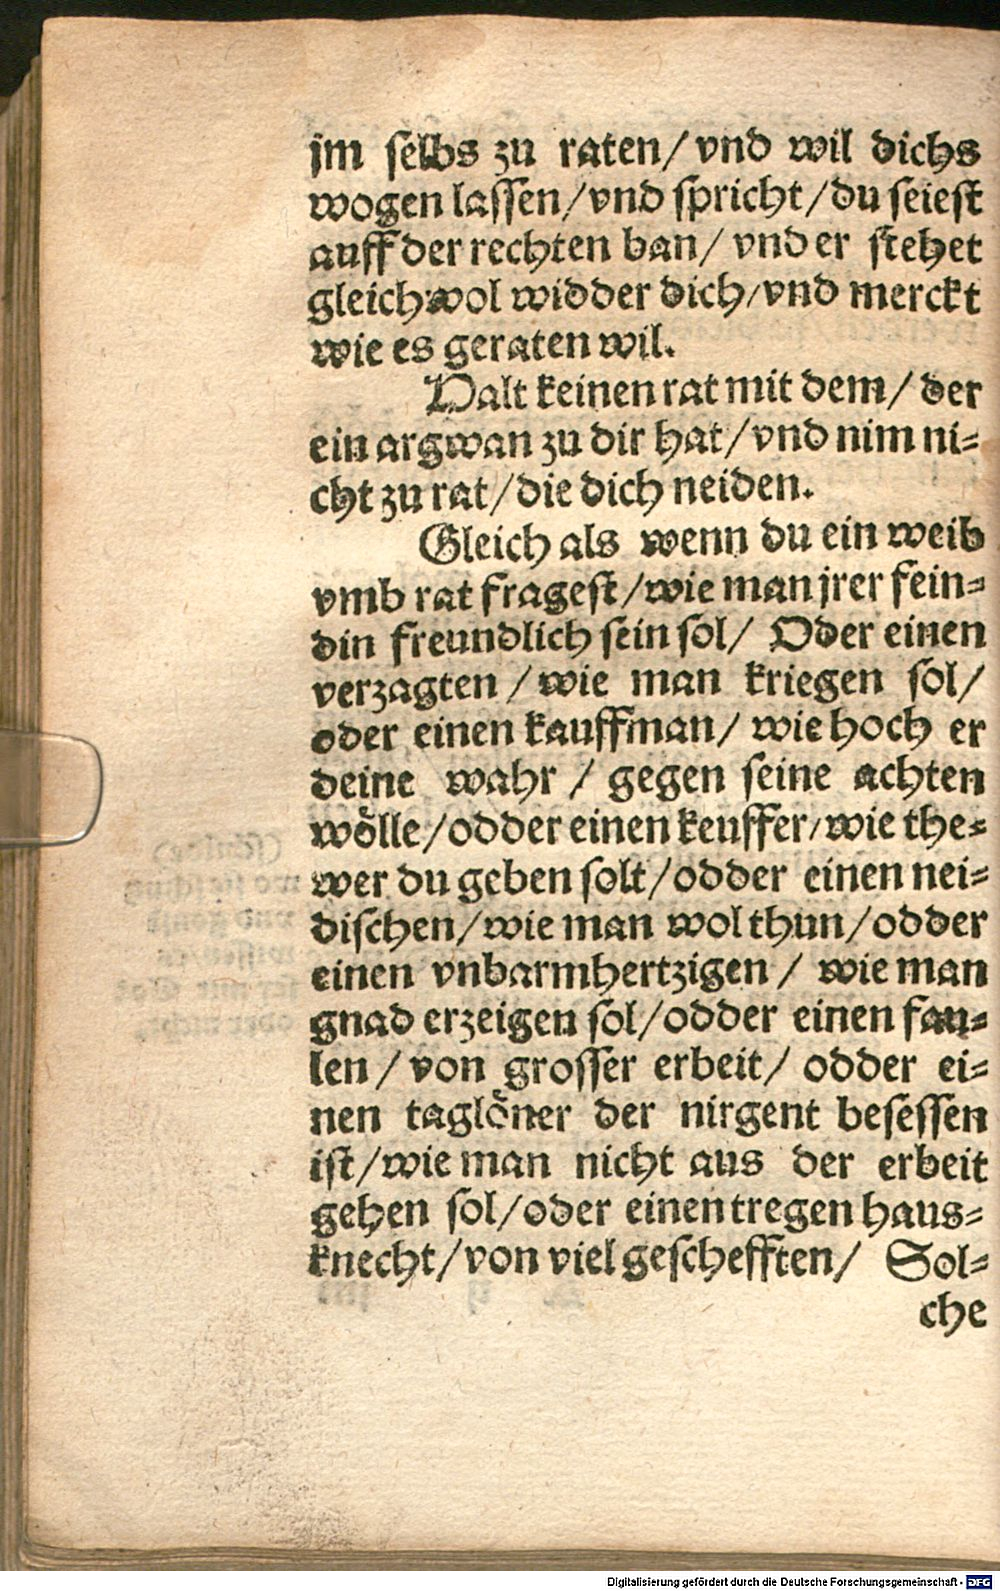 jm selbs zu raten/ vnd wil dichs
wogen lassen/vnd spricht/du seiest
auff der rechten ban/ vnd er stehet
gleichwol widder dich/vnd merckt
wie es geraten wil.
Halt keinen rat mit dem/ der
ein argwan zu dir hat/vnd nim ni=
cht zu rat/die dich neiden.
Gleich als wenn du ein weib
vmb rat fragest/wie man jrer fein=
din freundlich sein sol/ Oder einen
verzagten /wie man kriegen sol/
oder einen kauffman/ wie hoch er
deine wahr / gegen seine achten
wölle/odder einen keuffer/wie the=
wer du geben solt/odder einen nei=
dischen/wie man wol thun/odder
einen vnbarmhertzigen/ wie man
gnad erzeigen sol/odder einen fau=
len / von grosser erbeit/ odder ei=
nen taglöner der nirgent besessen
ist/wie man nicht aus der erbeit
gehen sol/oder einen tregen haus=
knecht/von viel geschefften/ Sol=
che
Digitalisierung gefördert durch die Deutsche Forschungsgemeinschaft - DFG